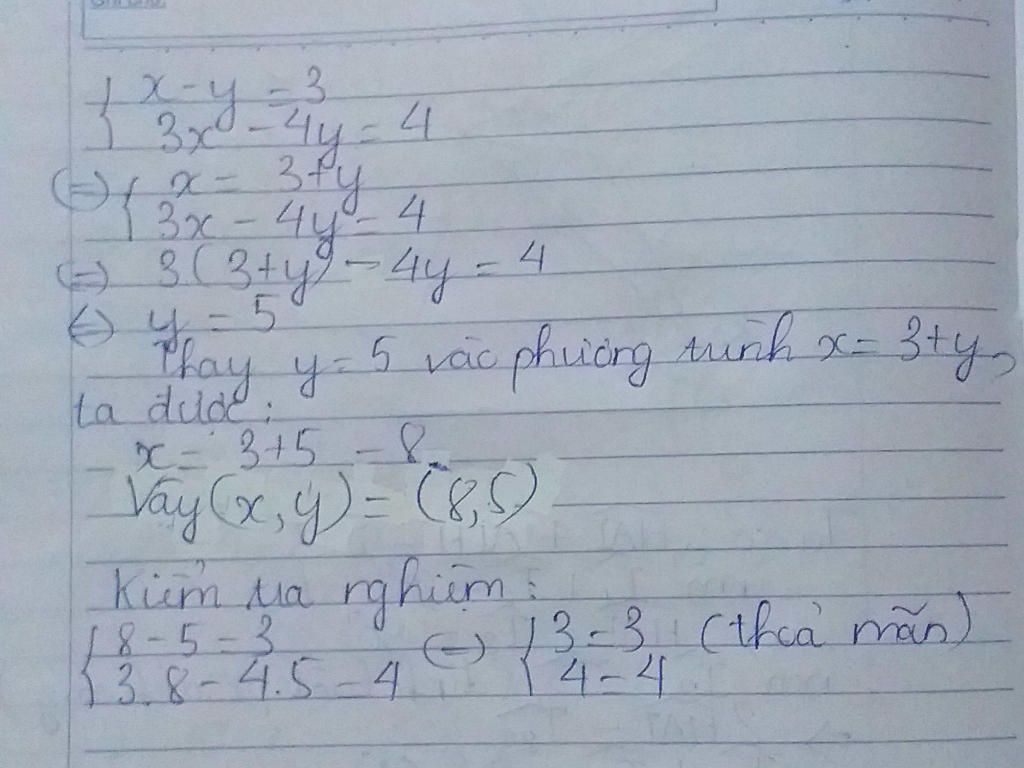 { x - y = 3
{ 3x - 4y = 4
(=) { x = 3+y
{ 3x - 4y = 4
(=) 3(3+y) - 4y = 4
(=) y = 5
Thay y = 5 vào phương trình x = 3+y,
ta được:
x = 3+5 = 8
Vậy (x, y) = (8,5)
Kiểm tra nghiệm:
{ 8 - 5 = 3 (=) { 3 = 3 (thoả mãn)
{ 3.8 - 4.5 = 4 { 4 = 4